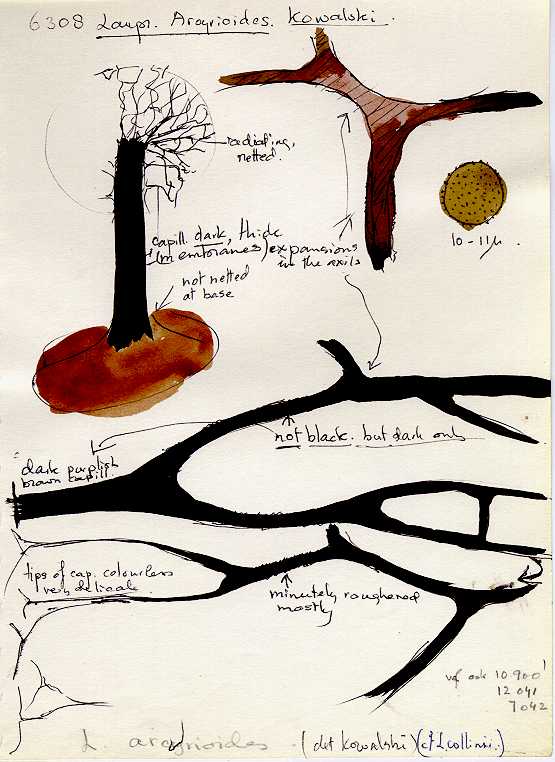 6308 Lampr. Arcyrioides. Kowalski.
radiating,
netted.
capill. dark, thick
(membranes) expansions
in the axils
10-11µ.
not netted
at base
not black. but dark only
dark purplish
brown capill.
tips of cap. colourless
very delicate.
minutely roughened
mostly
10.900
12 041
7042
L. arcyrioides. (det Kowalski) (cf L. collinsii.)